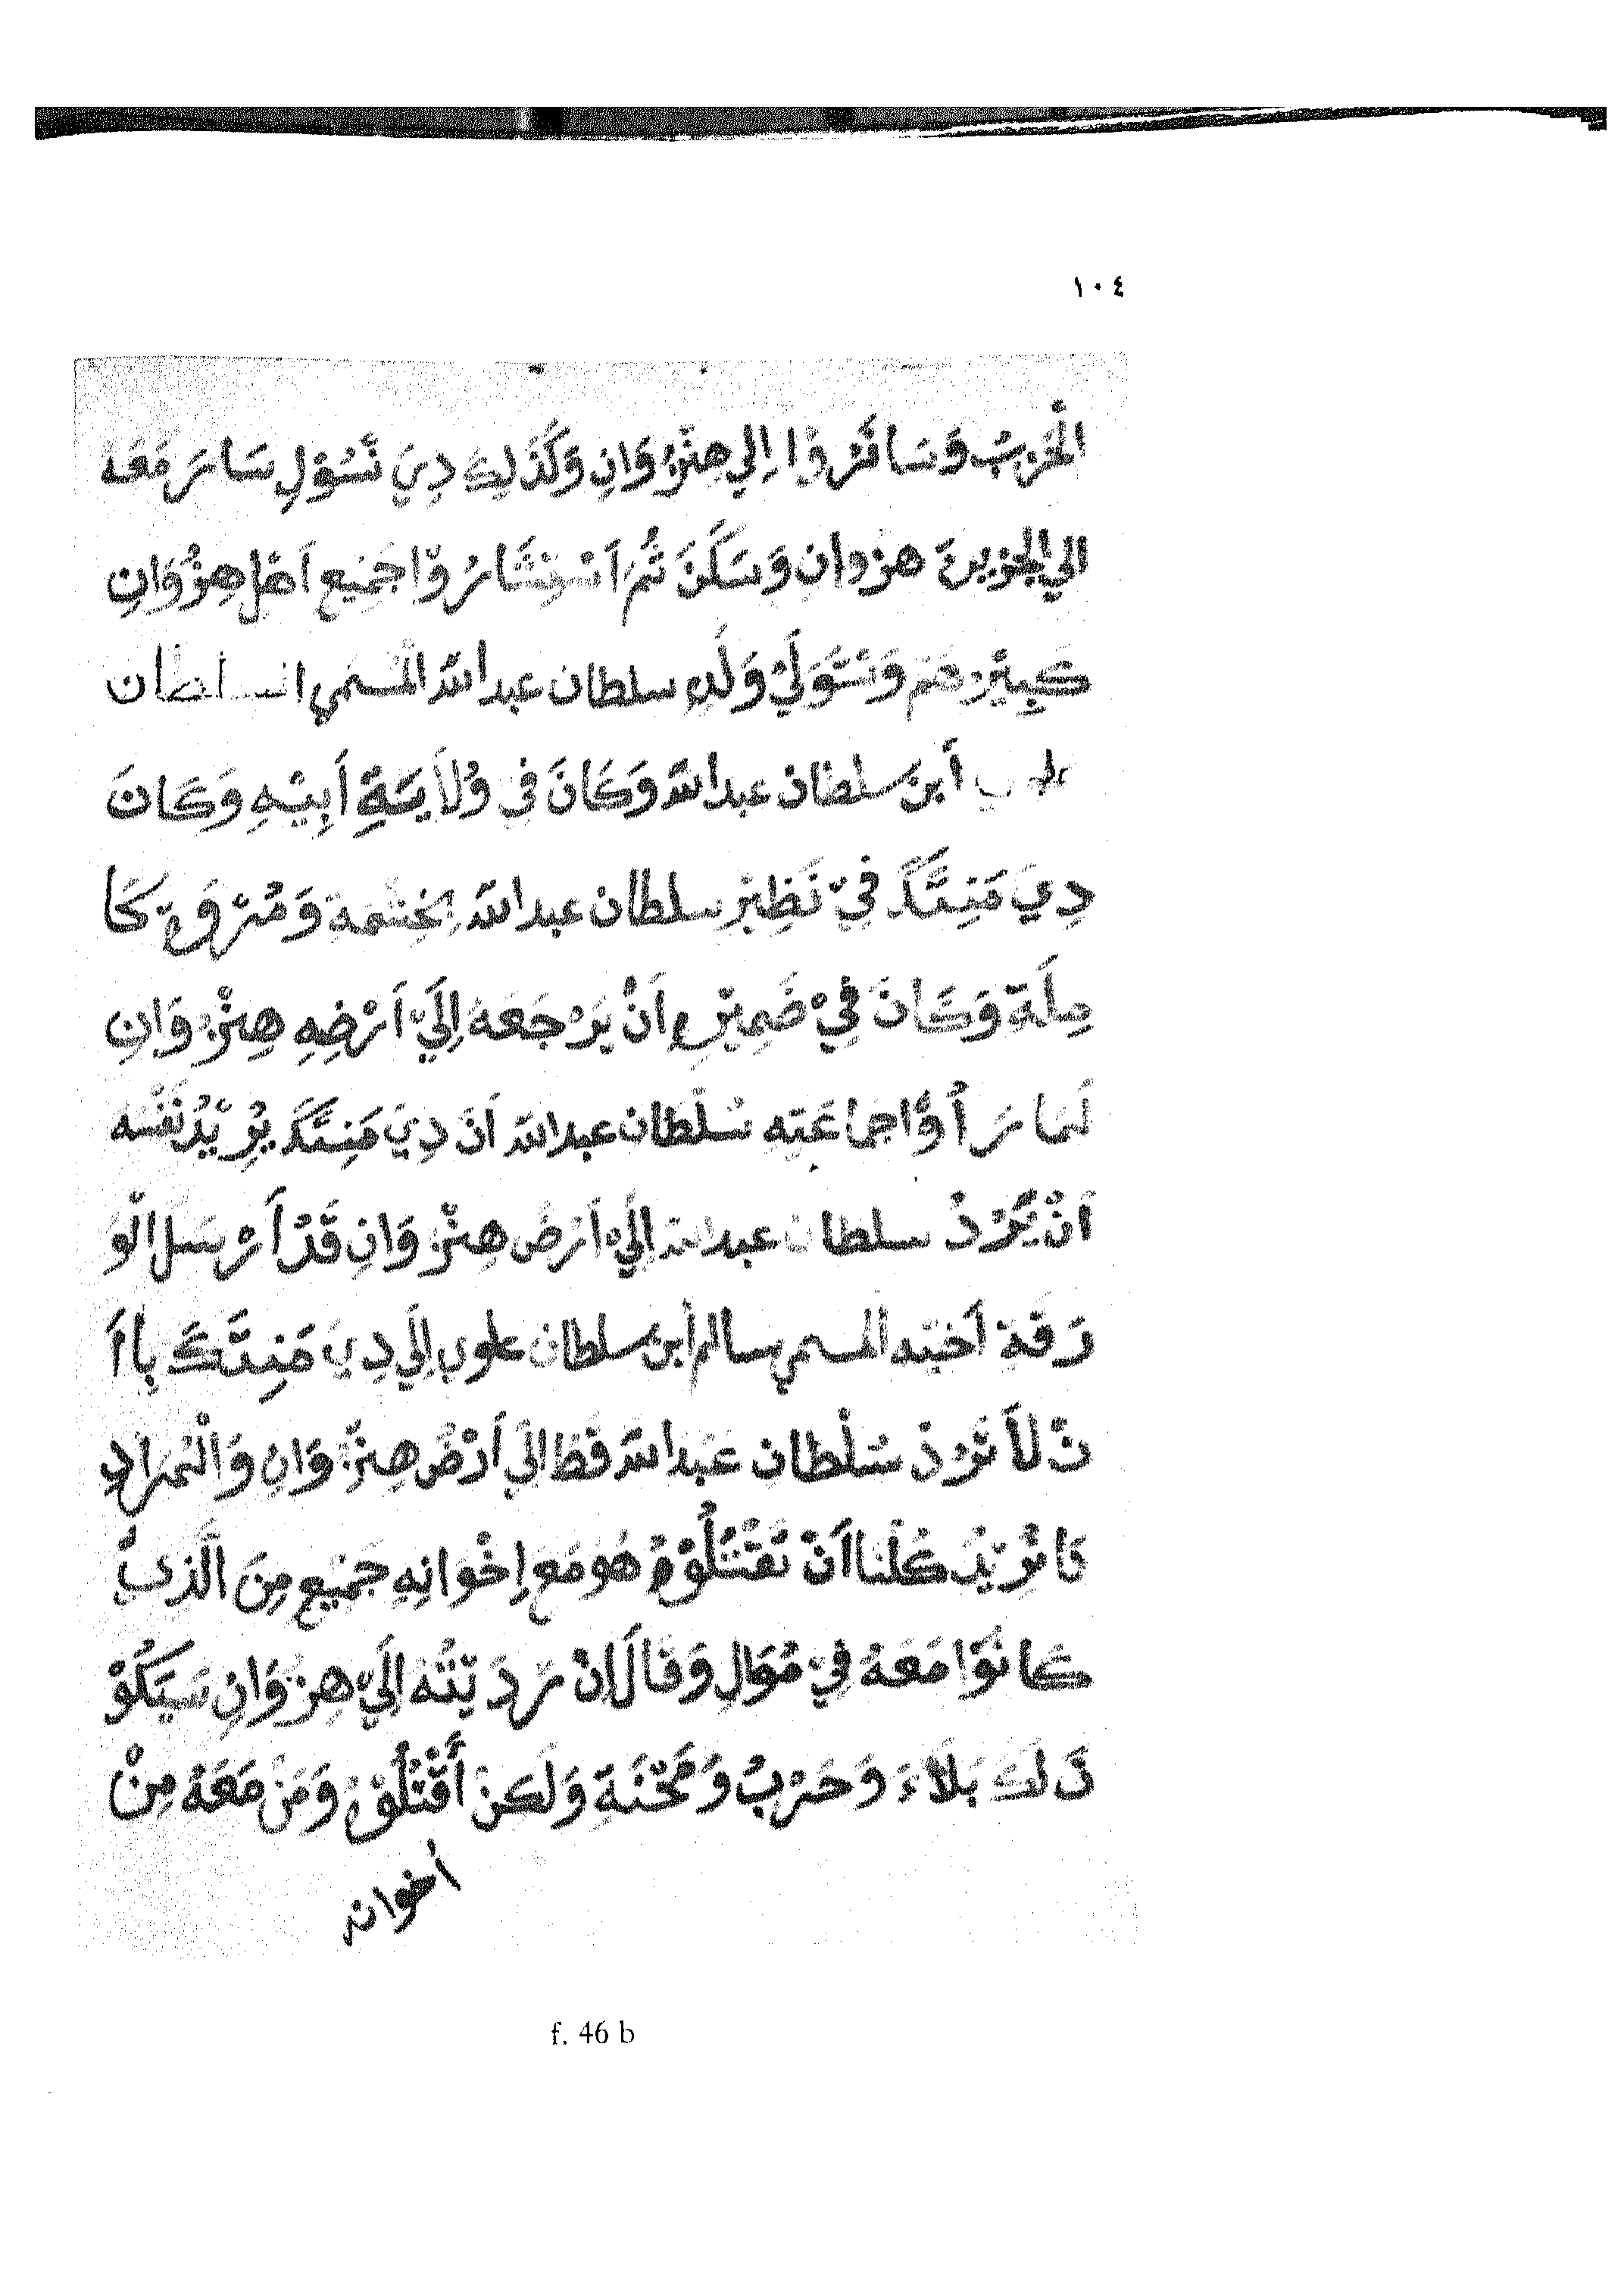 ١٠٤
الْحَرْبُ وَسَافَرُوْا اِلي هِنْزُوَانِ وَكَذَلِكَ دِيَ نَسُوْلِ سَافَرَ مَعَهُ
الي الجزيرة هنزوان وَسَكَنَ ثُمَّ اَسْتِشَارُوْا جَمِيْع اَهْل هِنْزُوَانِ
كَبِيْرُهُمْ وَتَوَلَّيْ وَلَدِ سلطان عبد اللّٰه المسمي السلطان
علوي أبن سلطان عبد اللّٰه وَكَانَ فِي وُلَايَةِ أَبِيْهِ وَكَانَ
دِيَ مَنِتَكَ فِيْ نَظِيْرِ سلطان عبد اللّٰه بِحِشْمَةِ وَمُرْوَةٍ كَا
مِلَةِ وَكَانَ فِيْ ضَمِيْرِهِ اَنْ يَرْجَعَهُ اِلَيْ اَرْضِهِ هِنْزُوَانِ
لَمَا رَأَوْا جماعَتِهِ سُلْطَان عبد اللّٰه اَنَّ دِيَ مَنِتَكَ يُرِيْدُ نَفْسَهُ
اَنْ يَرُدْ سلطان عبد اللّٰه اِلَيْ اَرْضُ هِنْزُوَانِ قَدْ أَرْسَلَ الْوَ
رَقَةِ اَخِيْهِ المسمي سالم أبن سلطان علوي اِلَي دِيَ مَنِتَكَ بِاأَ
نْ لَأ تَرُدْ سُلْطان عَبد اللّٰه قَطَا الَي أَرْضُ هِنْزُوَانِ وَالْمُرَادِ
نَا نُرِيْدُ كُلّنا اَنْ تَقْتُلُوْهُ هُوَ مَعَ اِخْوَانِهِ جَمِيْعِ مِنَ الَّذِيْ
كَانُوْا مَعَهُ فِيْ مُوَالِ وَقَالَ اِنْ رَدَيْتُهُ اِلَيْ هِنْزُوَانِ سَيَكُوْ
نَ لَكَ بَلَاءَ وَحَرْبُ وَمِحْنَةِ وَلَكِنْ أَقْتُلُوْهُ وَمَنْ مَعَهُ مِنْ
أخوانه
f. 46 b